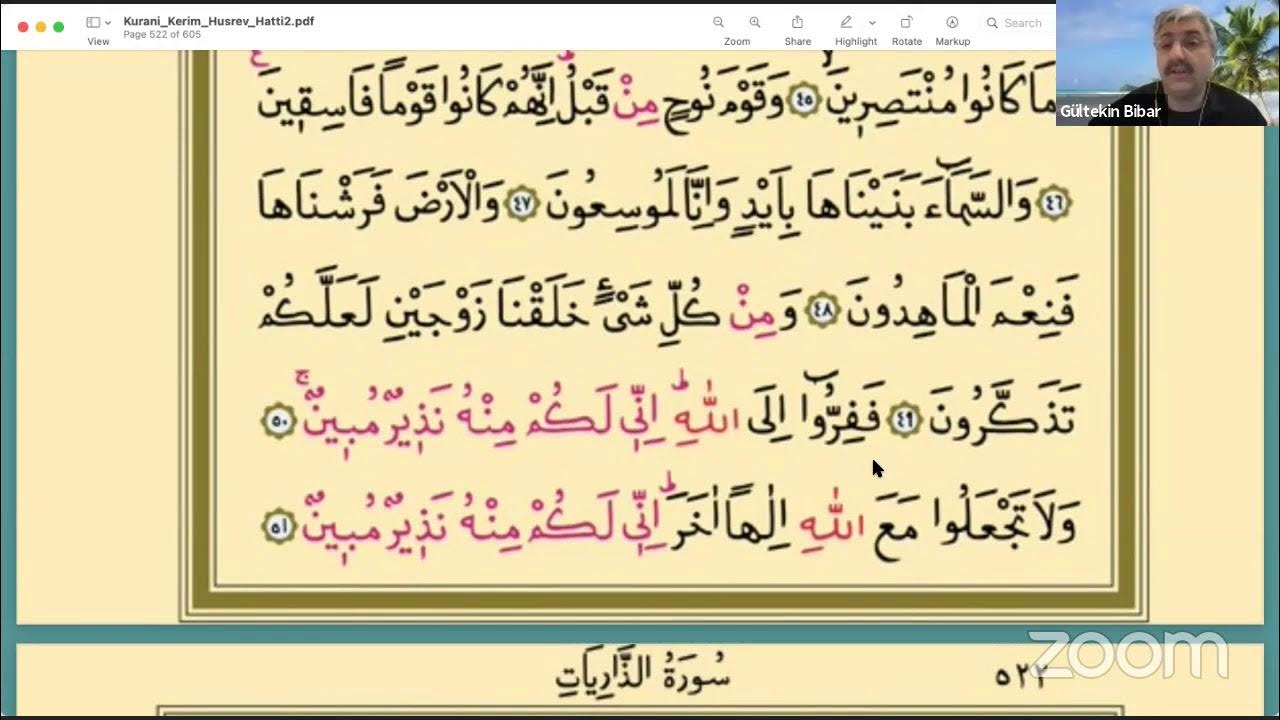 Kurani_Kerim_Husrev_Hatti2.pdf
Page 522 of 605
View
Zoom
Share
Highlight
Rotate
Markup
Search
Gültekin Bibar
مَا كَانُوا مُنْتَصِرِينَ ﴿٤٥﴾ وَقَوْمَ نُوحٍ مِنْ قَبْلُ اِنَّهُمْ كَانُوا قَوْمًا فَاسِقِينَ
﴿٤٦﴾ وَالسَّمَٓاءَ بَنَيْنَاهَا بِاَيْدٍ وَاِنَّا لَمُوسِعُونَ ﴿٤٧﴾ وَالْاَرْضَ فَرَشْنَاهَا
فَنِعْمَ الْمَاهِدُونَ ﴿٤٨﴾ وَمِنْ كُلِّ شَىْءٍ خَلَقْنَا زَوْجَيْنِ لَعَلَّكُمْ
تَذَكَّرُونَ ﴿٤٩﴾ فَفِرُّٓوا اِلَى اللّٰهِ اِنِّى لَكُمْ مِنْهُ نَذِيرٌ مُبِينٌ ﴿٥٠﴾
وَلَا تَجْعَلُوا مَعَ اللّٰهِ اِلٰهًا اٰخَرَ اِنِّى لَكُمْ مِنْهُ نَذِيرٌ مُبِينٌ ﴿٥١﴾
سُورَةُ الذَّارِيَاتِ
٥٢٢
zoom